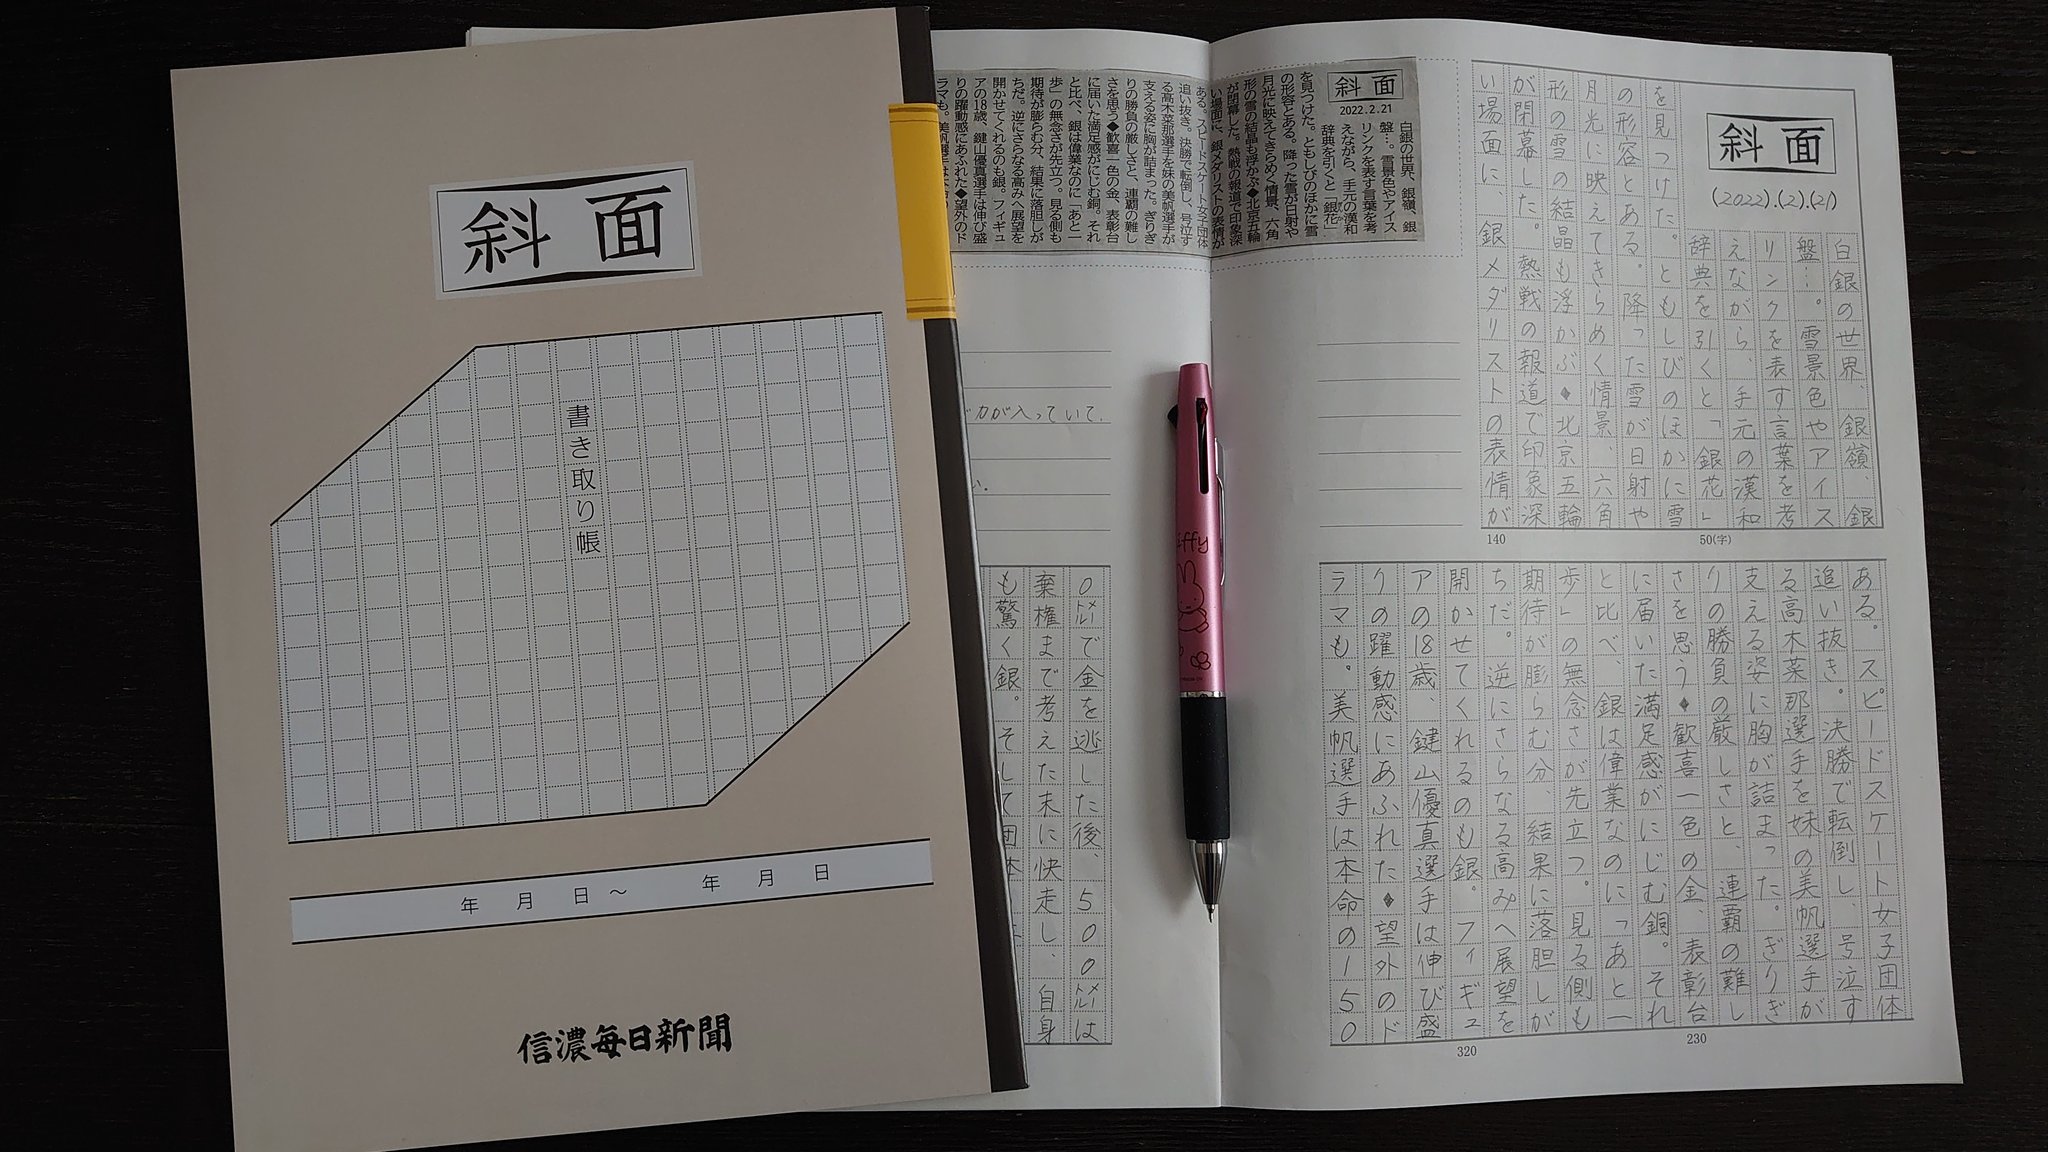 斜面
書き取り帳
年 月 日～ 年 月 日
信濃毎日新聞
斜面
2022.2.21
白銀の世界、銀嶺、銀
盤…。雪景色やアイス
リンクを表す言葉を考
えながら、手元の漢和
辞典を引くと「銀花」
を見つけた。ともしびのほかに雪
の形容とある。降った雪が日射や
月光に映えてきらめく情景、六角
形の雪の結晶も浮かぶ◆北京五輪
が閉幕した。熱戦の報道で印象深
い場面に、銀メダリストの表情が
ある。スピードスケート女子団体
追い抜き。決勝で転倒し、号泣す
る高木菜那選手を妹の美帆選手が
支える姿に胸が詰まった。ぎりぎ
りの勝負の厳しさと、連覇の難し
さを思う◆歓喜一色の金、表彰台
に届いた満足感がにじむ銅。それ
と比べ、銀は偉業なのに「あと一
歩」の無念さが先立つ。見る側も
期待が膨らむ分、結果に落胆しが
ちだ。逆にさらなる高みへ展望を
開かせてくれるのも銀。フィギュ
アの18歳、鍵山優真選手は伸び盛
りの躍動感にあふれた◆望外のド
ラマも。美帆選手は
斜面
(2022).(2).(21)
白銀の世界、銀嶺、銀
盤…。雪景色やアイス
リンクを表す言葉を考
えながら、手元の漢和
辞典を引くと「銀花」
を見つけた。ともしびのほかに雪
の形容とある。降った雪が日射や
月光に映えてきらめく情景、六角
形の雪の結晶も浮かぶ◆北京五輪
が閉幕した。熱戦の報道で印象深
い場面に、銀メダリストの表情が
50(字)
140
ある。スピードスケート女子団体
追い抜き。決勝で転倒し、号泣す
る高木菜那選手を妹の美帆選手が
支える姿に胸が詰まった。ぎりぎ
りの勝負の厳しさと、連覇の難し
さを思う◆歓喜一色の金、表彰台
に届いた満足感がにじむ銅。それ
と比べ、銀は偉業なのに「あと一
歩」の無念さが先立つ。見る側も
期待が膨らむ分、結果に落胆しが
ちだ。逆にさらなる高みへ展望を
開かせてくれるのも銀。フィギュ
アの18歳、鍵山優真選手は伸び盛
りの躍動感にあふれた◆望外のド
ラマも。美帆選手は本命の150
230
320
力が入っていて、
い。
0メートルで金を逃した後、500メートルは
棄権まで考えた末に快走し、自身
も驚く銀。そして団体
miffy